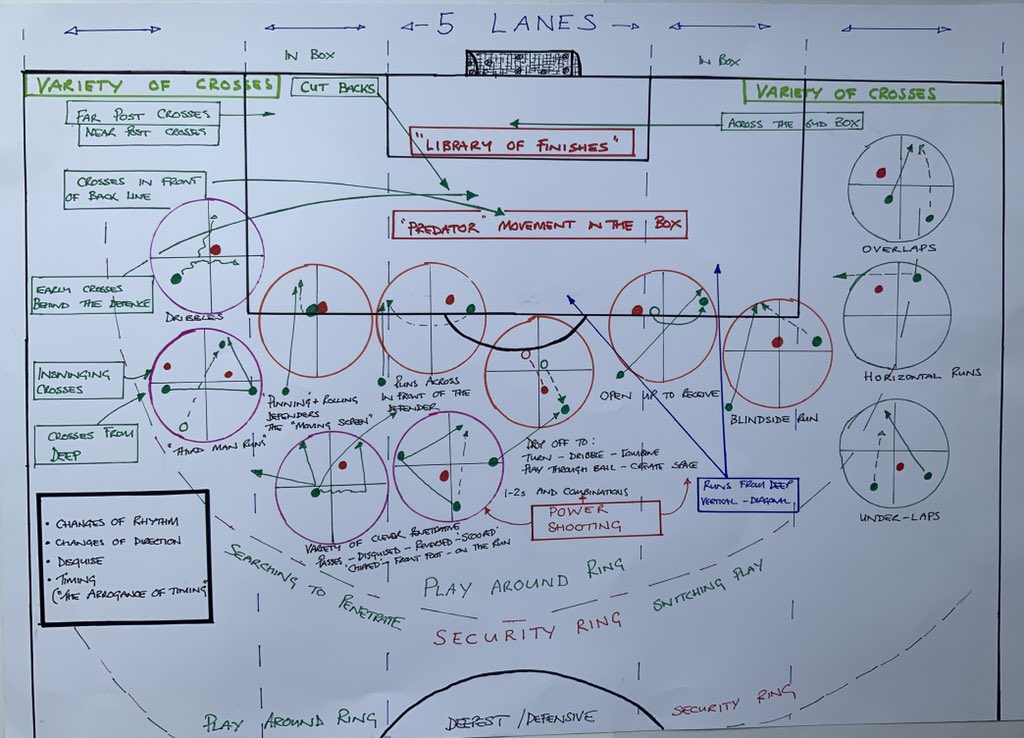 5 LANES
IN BOX
IN BOX
VARIETY OF CROSSES
CUT BACKS
VARIETY OF CROSSES
FAR POST CROSSES
NEAR POST CROSSES
ACROSS THE 6YD BOX
"LIBRARY OF FINISHES"
CROSSES IN FRONT
OF BACK LINE
"PREDATOR" MOVEMENT IN THE BOX
OVERLAPS
EARLY CROSSES
BEHIND THE DEFENCE
DRIBBLES
INSWINGING
CROSSES
HORIZONTAL RUNS
"PINNING + ROLLING
DEFENDERS
THE "MOVING SCREEN"
RUNS ACROSS
IN FRONT OF THE
DEFENDER
OPEN UP TO RECEIVE
BLINDSIDE RUN
CROSSES FROM
DEEP
"THIRD MAN RUN"
DROP OFF TO:
TURN - DRIBBLE - COMBINE
PLAY THROUGH BALL - CREATE SPACE
1-2s AND COMBINATIONS
POWER
SHOOTING
RUNS FROM DEEP
VERTICAL - DIAGONAL
UNDER-LAPS
• CHANGES OF RHYTHM
• CHANGES OF DIRECTION
• DISGUISE
• TIMING
("THE ARROGANCE OF TIMING"
VARIETY OF CLEVER PENETRATIVE
PASSES - DISGUISED - REVERSED - "SCOOPED"
"CHIPPED" - FRONT FOOT - ON THE RUN
SEARCHING TO PENETRATE
PLAY AROUND RING
SWITCHING PLAY
SECURITY RING
PLAY AROUND RING
DEEPEST / DEFENSIVE
SECURITY RING